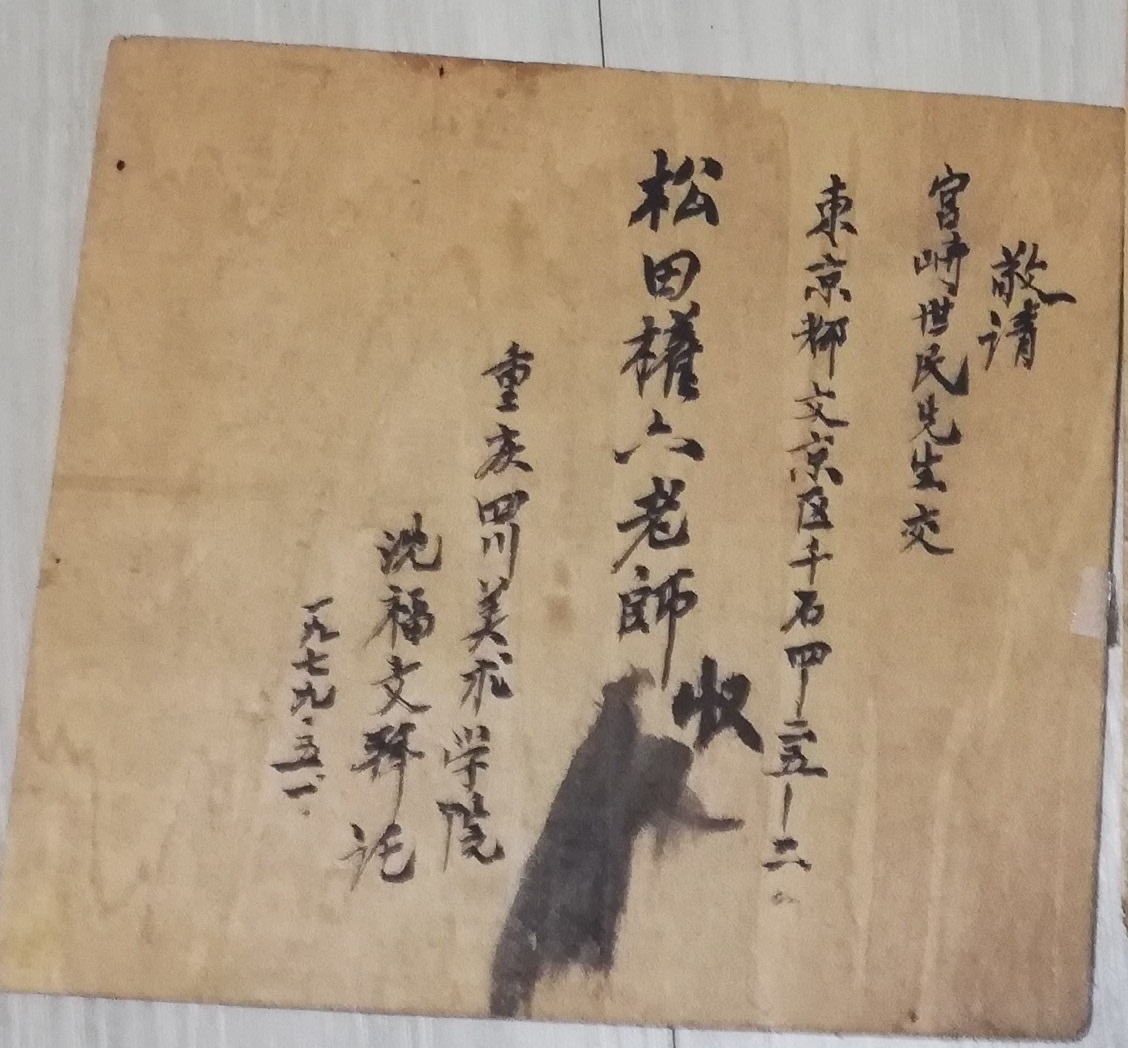 敬请
宫崎世民先生交
東京都文京区千石四-二五-二
松田權六老師收
重庆四川美术学院
沈福文拜託
一九七九.五.一.